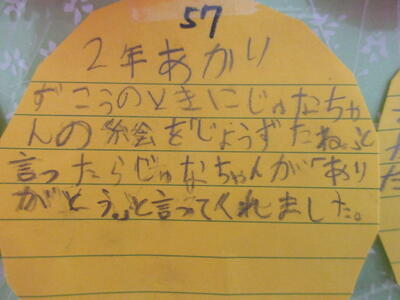 57
2年あかり
ずこうのときにじゅなちゃ
んの絵を「じょうずだね。」と
言ったらじゅなちゃんが「あり
がとう。」と言ってくれました。